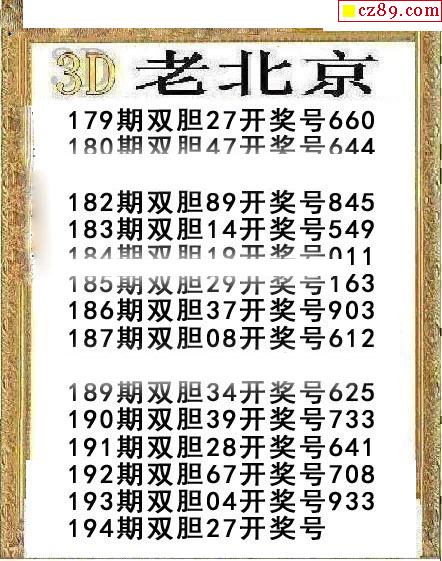 cz89.com
3D 老北京
179期双胆27开奖号660
180期双胆47开奖号644
182期双胆89开奖号845
183期双胆14开奖号549
184期双胆19开奖号011
185期双胆29开奖号163
186期双胆37开奖号903
187期双胆08开奖号612
189期双胆34开奖号625
190期双胆39开奖号733
191期双胆28开奖号641
192期双胆67开奖号708
193期双胆04开奖号933
194期双胆27开奖号